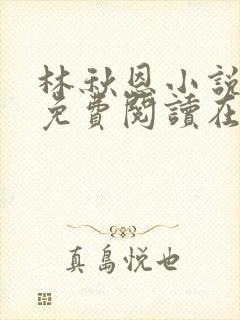 林秋恩小說
免費閱讀在
真島悦也